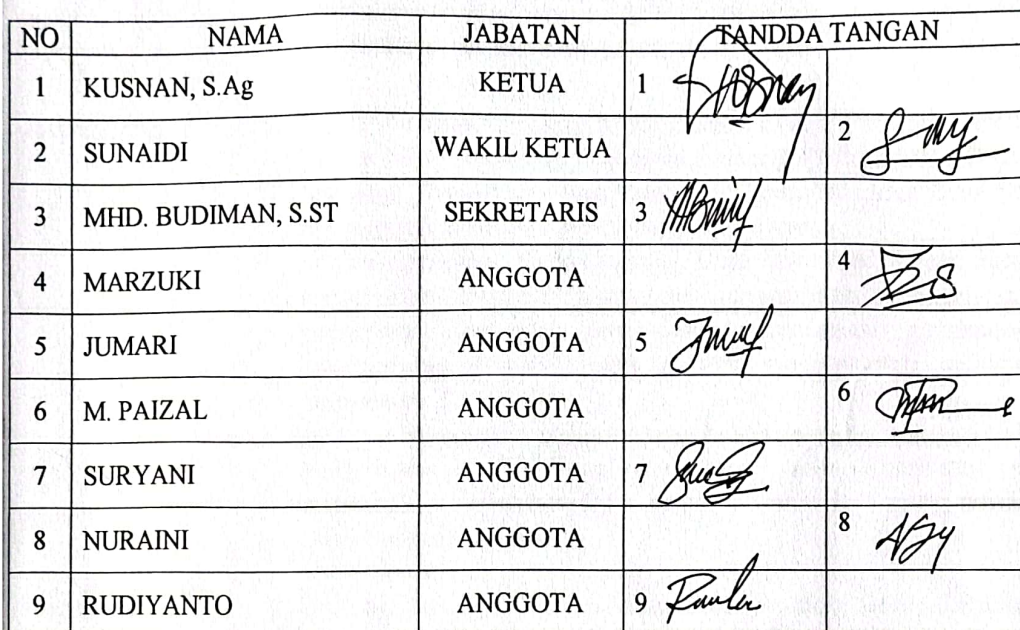 NO NAMA JABATAN TANDDA TANGAN
1 KUSNAN, S.Ag KETUA 1
2 SUNAIDI WAKIL KETUA 2
3 MHD. BUDIMAN, S.ST SEKRETARIS 3
4 MARZUKI ANGGOTA 4
5 JUMARI ANGGOTA 5
6 M. PAIZAL ANGGOTA 6
7 SURYANI ANGGOTA 7
8 NURAINI ANGGOTA 8
9 RUDIYANTO ANGGOTA 9